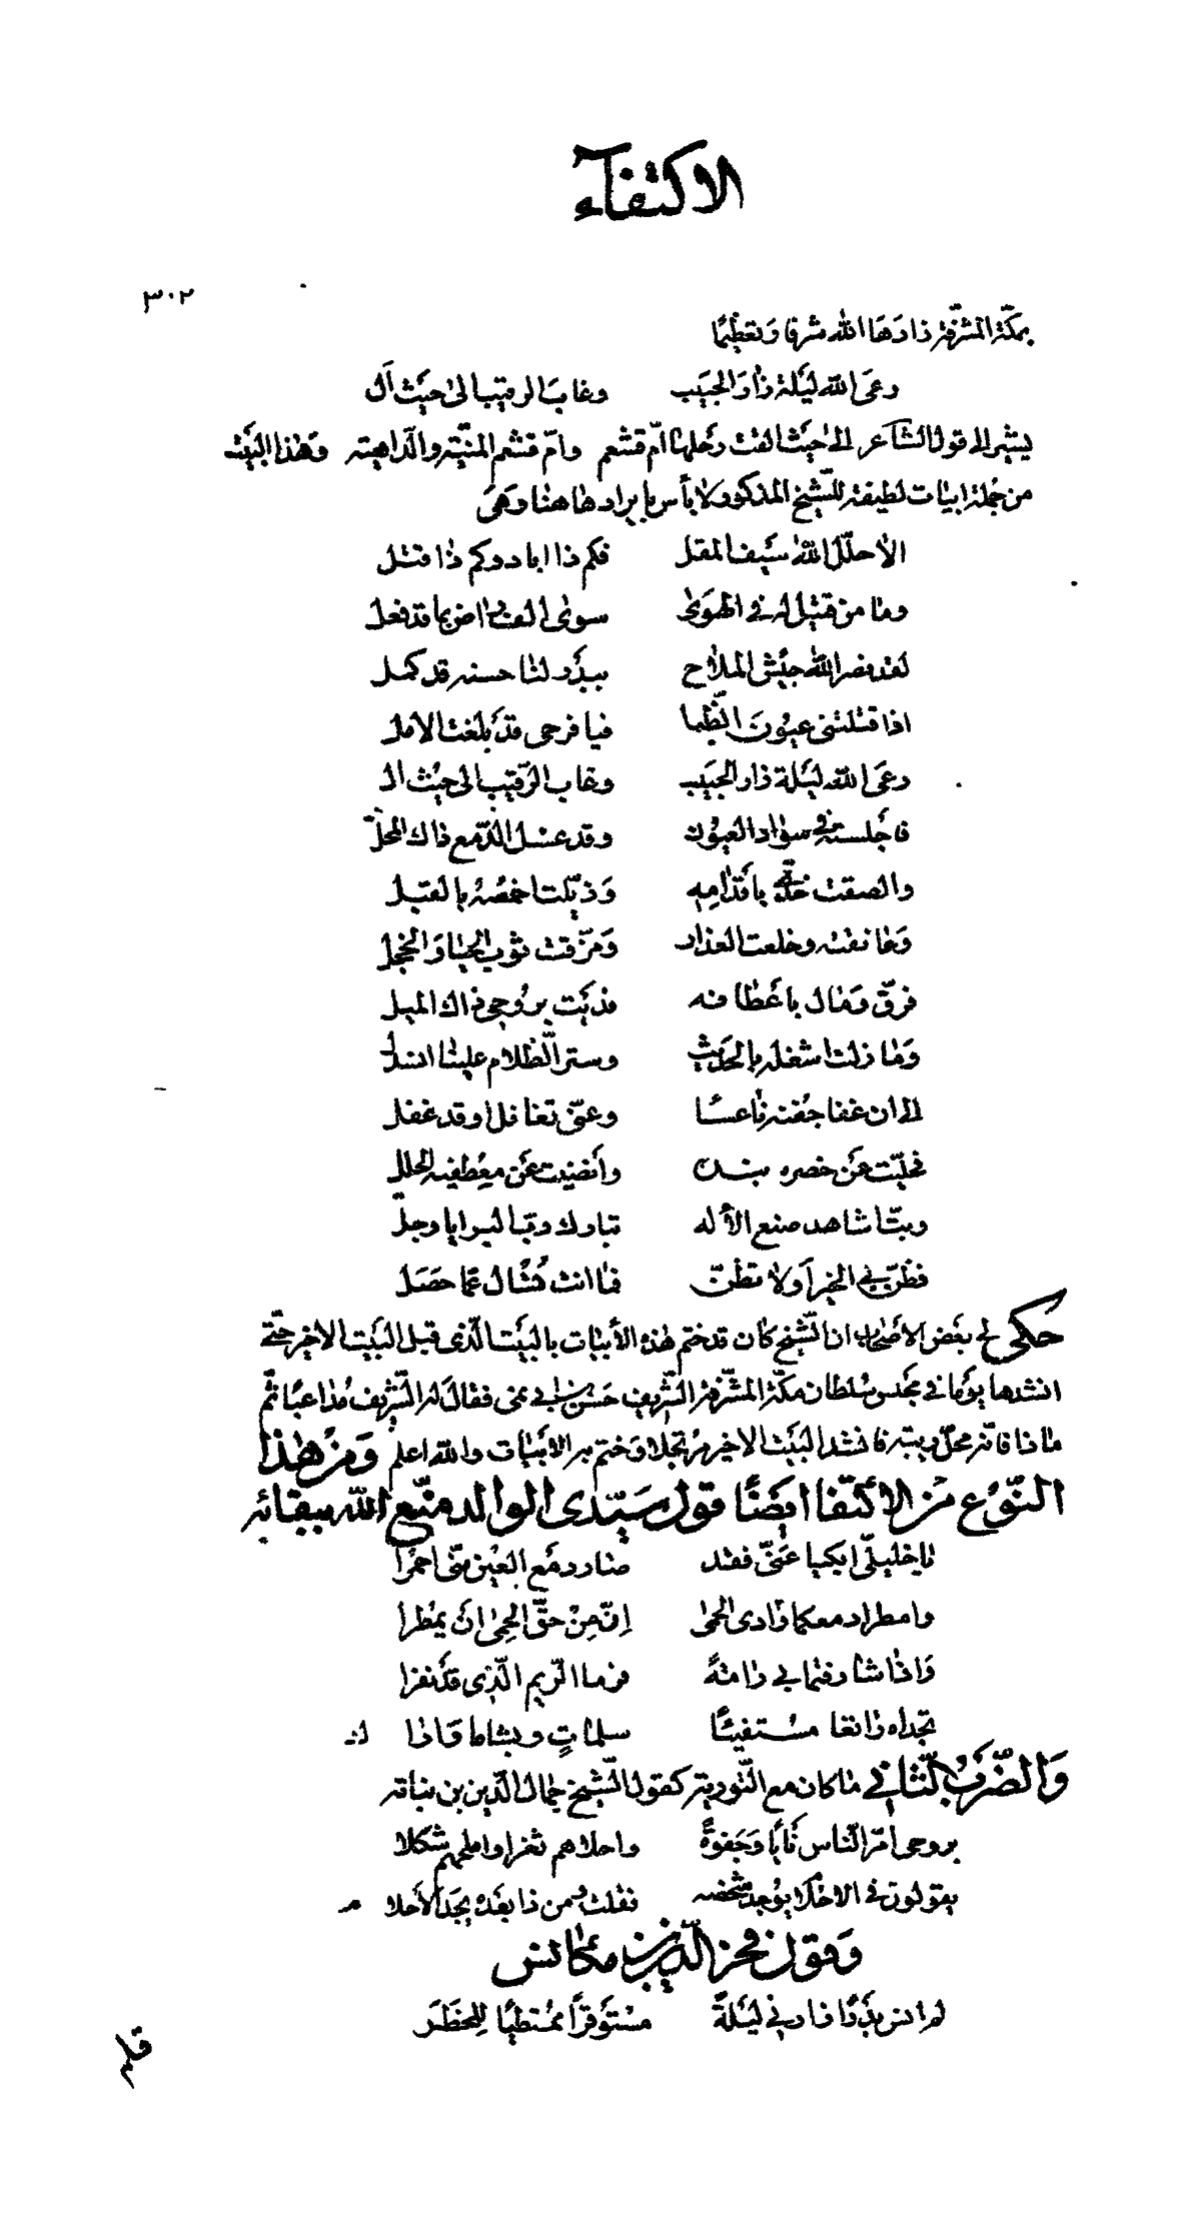 الاكتفآء
٣٠٢
بمكّة المشرّفة زادَهَا الله شرفا وَتعظيمًا
رعَى الله ليَلة زارَ الحبَيب وغابَ الرقيب الى حيَث اَل
يشير الى قول الشاعر الى حيَث القت رحلها امّ قشعم وامّ قشعم المنيّة والدّاهية وَهٰذا البَيت
من جُملة ابيات لطيفة للشّيخ المذكور ولا بأس بايرادها هنا وَهىَ
الا حلّل اللهُ سَيف المقل فكم ذا ابادوكم ذا قتل
وما من قتيل له فى الهَوىٰ سوىٰ الف راض بما قد فعل
لقد نصر اللهُ جيَش الملاح ببدَر لنا حسنه قد كمل
اذا قتلتنى عيوُنَ الظّبا فيا فرحى قدَ بلغت الامل
رعَى الله ليَلة زار الحبَيب وغاب الرّقيب الى حيُث ال
فاجَلسته فى سواد العيوُن وقد غسل الدّمع ذاك المحلّ
والصقت خدّى باقدَامِه وَذيّلت اخمصُهُ بالقبل
وَعانقته وخلعت العذار وَمزّقت ثوبَ الحيا وَالخجل
فرقّ وَمال باعَطافه فذبَت برُوحى ذاك الميل
وَما زلت اشغله بالحدَيث وستر الظّلام علينا انسدل
الى ان غفا جفنه ناعسًا وعنّى تغافل او قد غفل
فحلّيت عَن خصره بنده وانَضيت عَن معِطفيه الحلل
وبتّ اشاهد صنع الاله تبارك ربّ البرايا وجلّ
فظُنّ بى الخيرَ اوَلا تظنّ فما انت تُسَال عمّا حصَل
حكى لى بعَض الاصَحاب انّ الشّيخ كان قد ختم هٰذه الأبيات بالبَيت الّذى قبل البَيت الاخير حتّى
انشدها يوَما فى مجَلس سُلطان مكّة المشرّفة الشّريف حَسَن بن ابى نمى فقال لَه الشّريف مُداعبًا ثمّ
ماذا فانّه محلّ ريبة فانشد البَيت الاخير مُرتجلا وَختم به الابَيات والله اعلم وَمن هٰذا
النّوَع من الاكتفا ايضَاً قول سَيّدى الوالد متّع الله ببقائه
يا خليلىّ ابكيا عَنّى فقد صار دمَع العَين منّى احمَرا
وامطرا دمعكما وادى الحمىٰ اِنّ مِنْ حقّ الحِمىٰ انَ يمُطرا
وَاذا شارفتما بى رامةً فزما الرّيم الّذى قدَ نفرا
تجداه راتعا مسُتفيئًا سلماتٍ وبشاما وَاذا
وَالضّرَبُ الثّانى ما كان مع التّورية كقول الشّيخ جمال الدّين بن نباتة
بروحى امَرّ النّاس نَأيًا وَجَفوةً واحلاهم ثغرا واملحهم شكلا
يقولون فى الاحَلا يوُجد شخصه فقلت ومن ذا بعَده يجَد الاَحلا
وَقول فخر الدّين بن مكانس
لم انس بدَرًا زارنى ليَلةً مسْتوَفزاً ممُتطيًا للِخَطَرَ
قلم